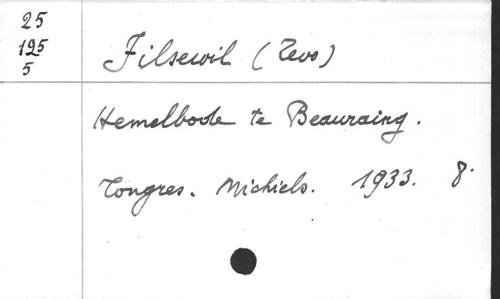 25
195
5
Filsewil (Zevo)
Hemelbode te Beauraing.
Tongres. Michiels. 1933. 8°